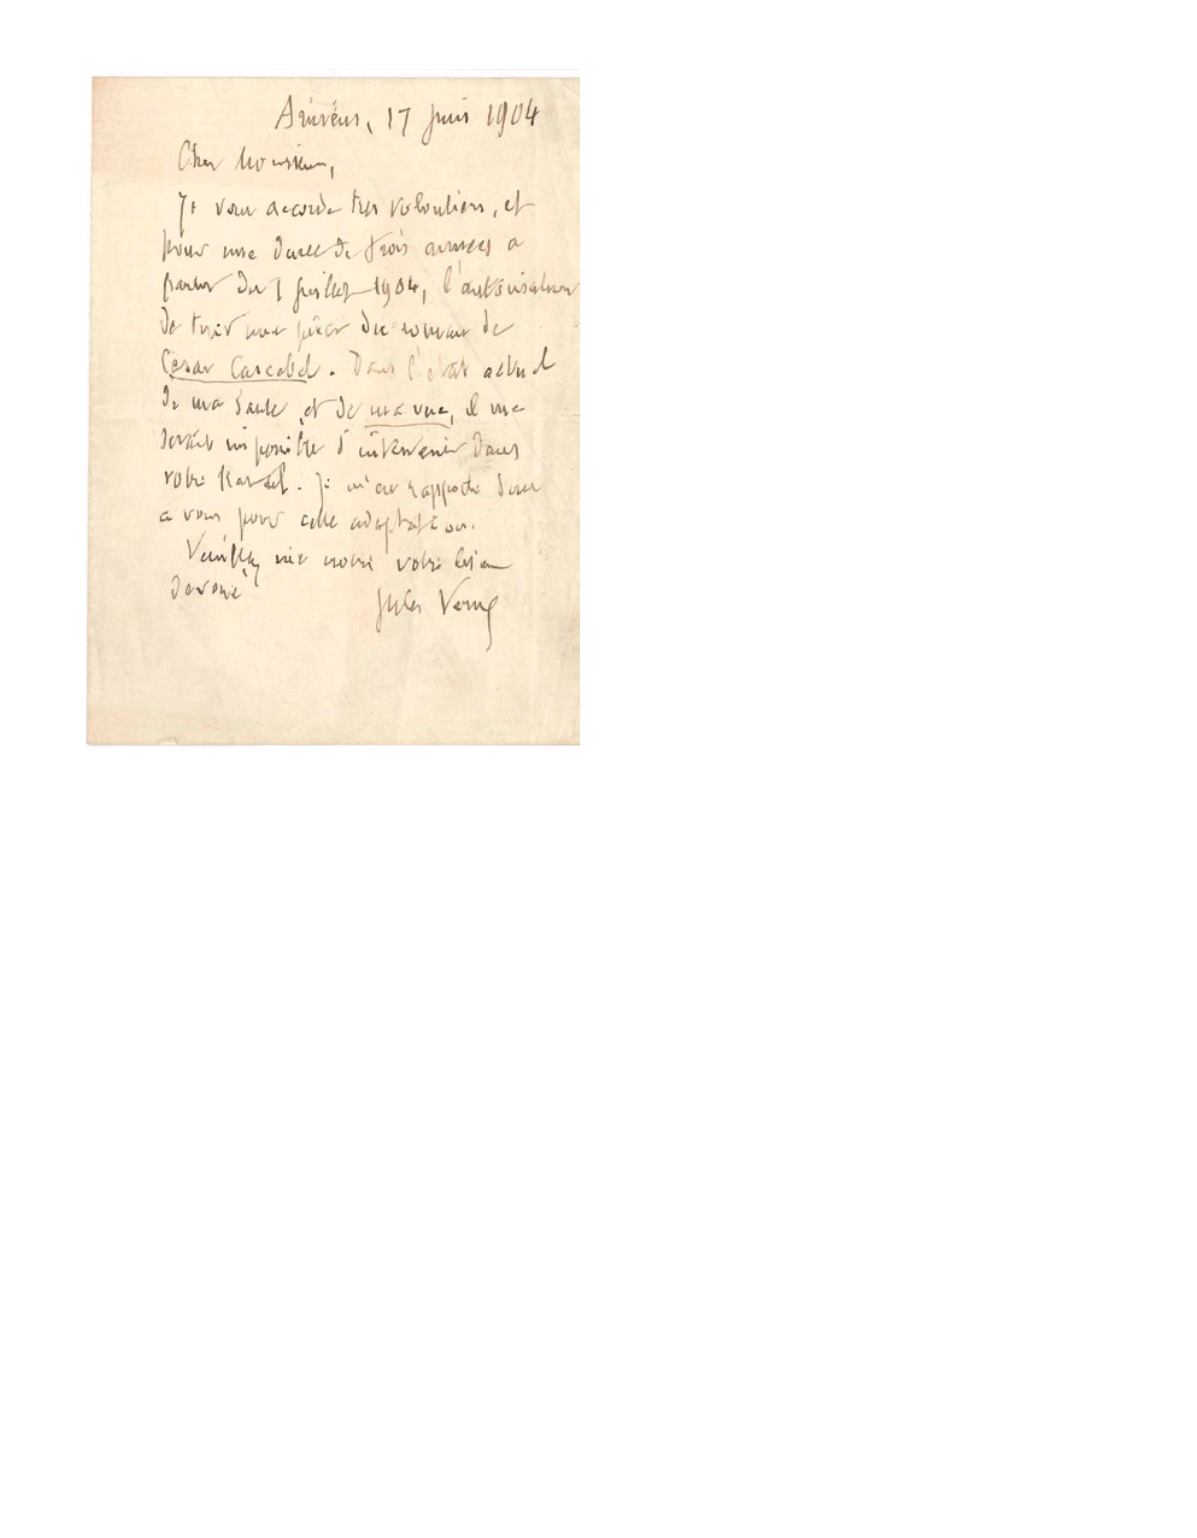 Amiens, 17 juin 1904
Cher Monsieur,
Je vous accorde très volontiers, et
pour une durée de trois années a
partir du 1 juillet 1904, l'autorisation
de tirer une pièce du roman de
César Cascabel. Dans l'état actuel
de ma santé, et de ma vue, il me
serait impossible d'intervenir dans
votre travail. Je m'en rapporte donc
a vous pour cette adaptation.
Veuillez me croire votre bien
dévoué
Jules Verne